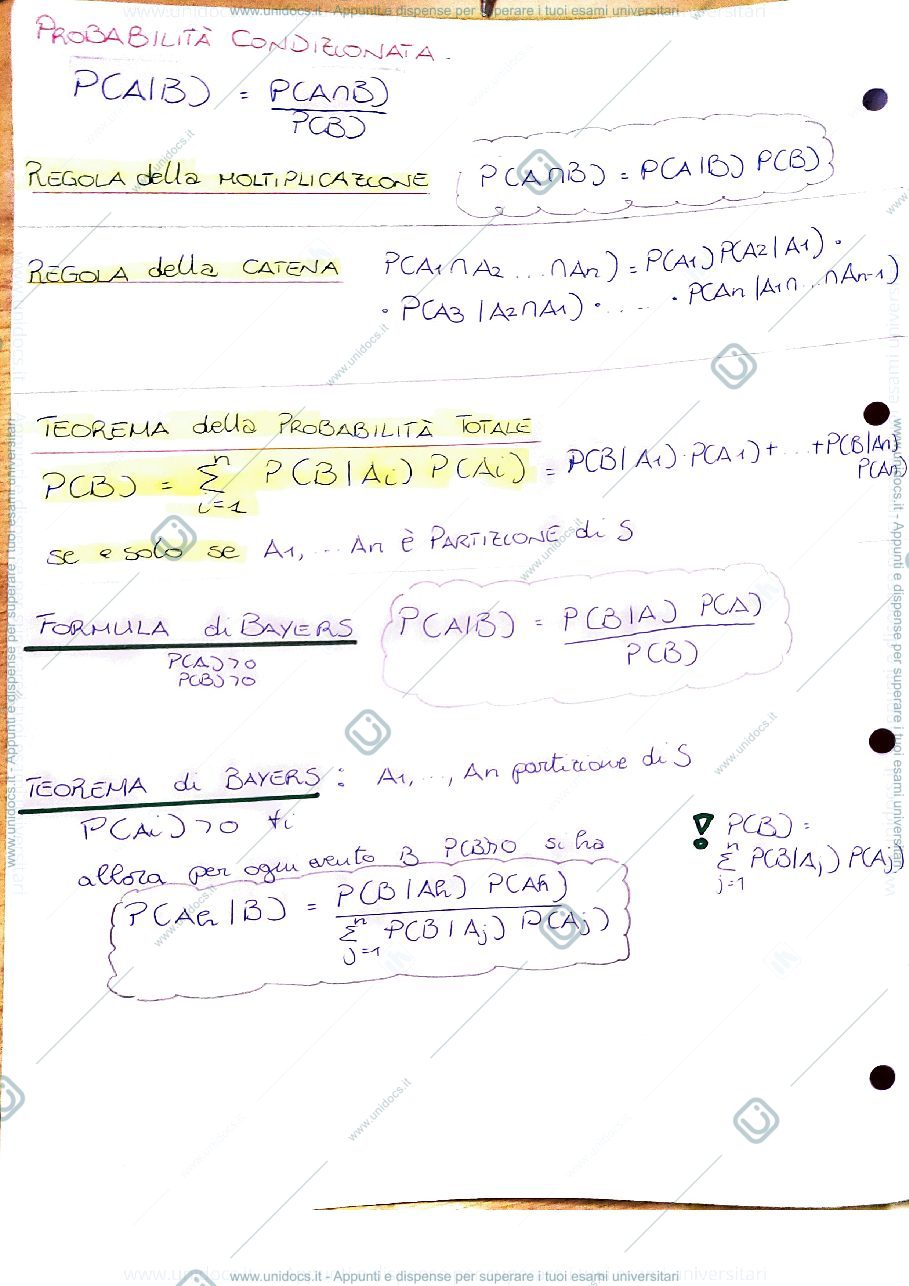 www.unidocs.it - Appunti e dispense per superare i tuoi esami universitari
PROBABILITÀ CONDIZIONATA.
P(A|B) = P(A∩B) / P(B)
REGOLA della MOLTIPLICAZIONE P(A∩B) = P(A|B) P(B)
REGOLA della CATENA P(A1∩A2 ... ∩An) = P(A1) P(A2|A1) ·
· P(A3|A2∩A1) · .... · P(An|A1∩...∩An-1)
TEOREMA della PROBABILITÀ TOTALE
P(B) = ∑ⁿᵢ₌₁ P(B|Ai) P(Ai) = P(B|A1)·P(A1)+ ... +P(B|An)
P(An)
se e solo se A1, ... An è PARTIZIONE di S
FORMULA di BAYERS P(A|B) = P(B|A) P(A) / P(B)
P(A)>0
P(B)>0
TEOREMA di BAYERS : A1, ..., An partizione di S
P(Ai)>0 ∀i
allora per ogni evento B P(B)>0 si ha
P(Ah|B) = P(B|Ah) P(Ah) / ∑ⁿⱼ₌₁ P(B|Aj) P(Aj)
! P(B) =
∑ⁿⱼ₌₁ P(B|Aj) P(Aj)
www.unidocs.it - Appunti e dispense per superare i tuoi esami universitari